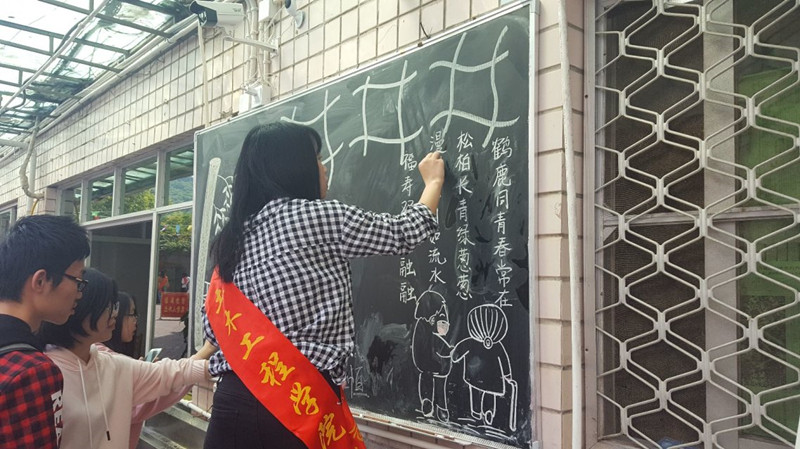 鹤鹿同青春常在
松柏长青绿葱葱
漫 如流水
福寿 融融
土木工程学院